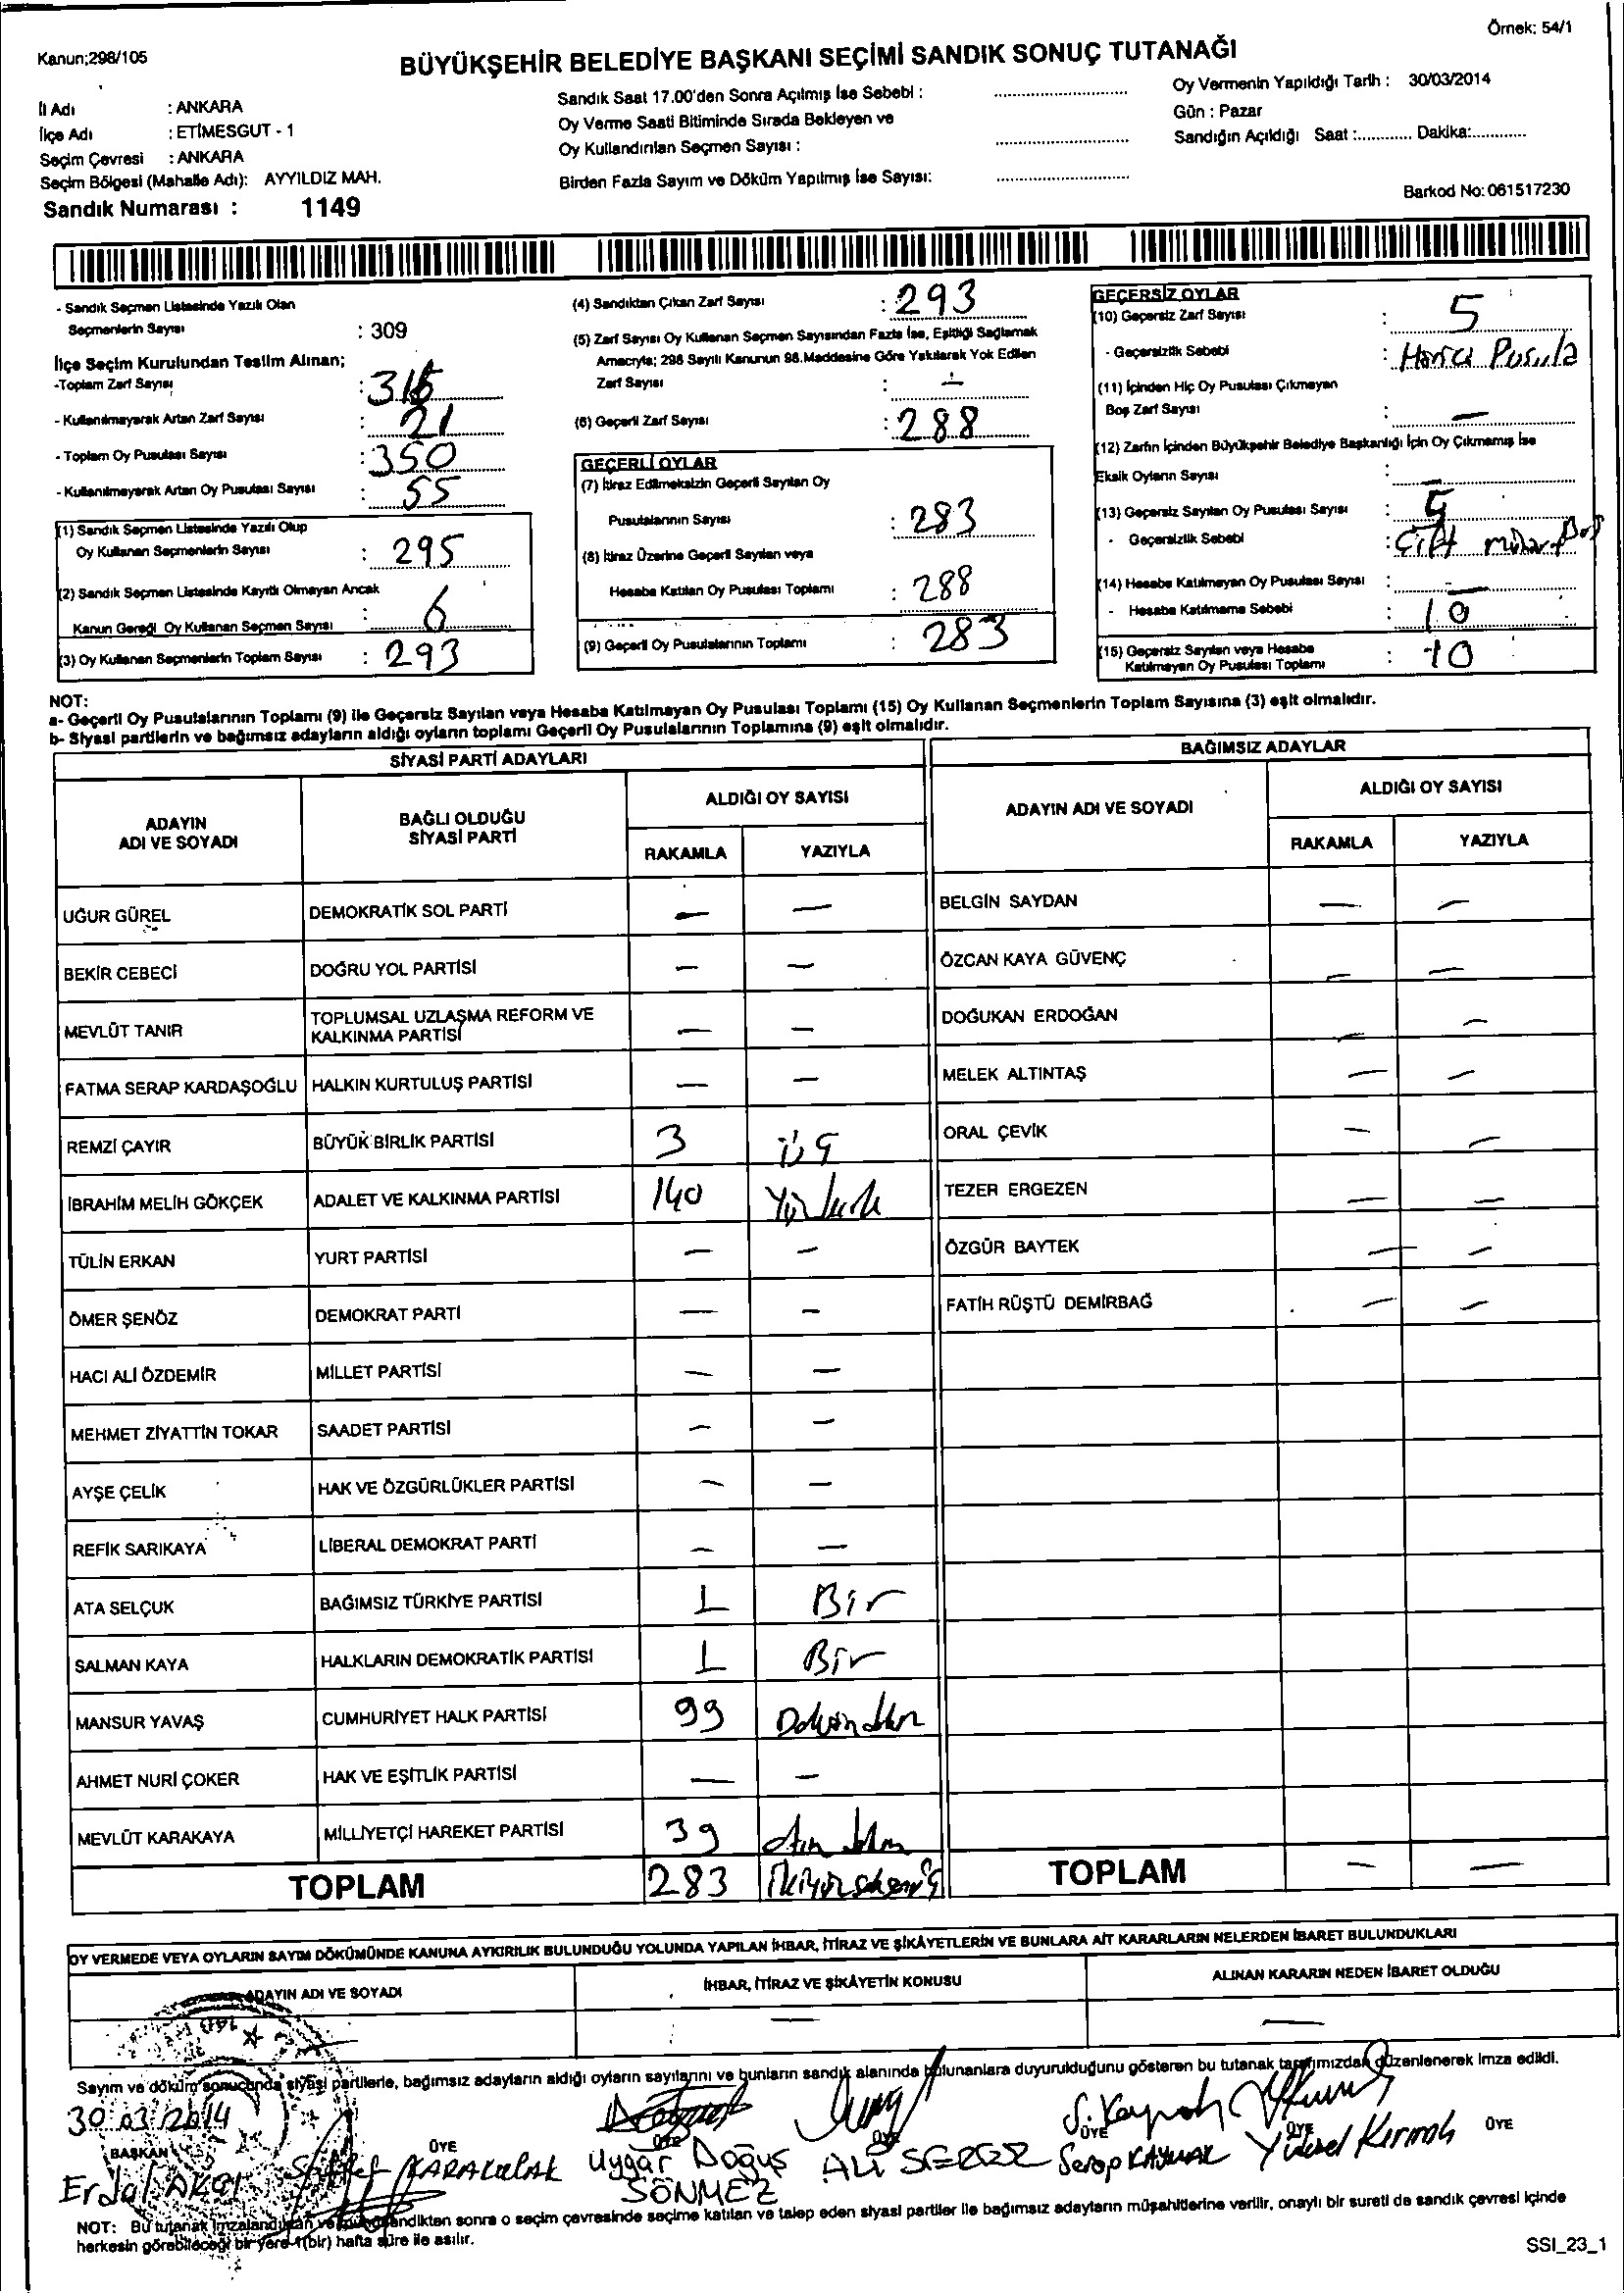 Örnek: 54/1
Kanun;298/105
BÜYÜKŞEHİR BELEDİYE BAŞKANI SEÇİMİ SANDIK SONUÇ TUTANAĞI
İl Adı : ANKARA
İlçe Adı : ETİMESGUT - 1
Seçim Çevresi : ANKARA
Seçim Bölgesi (Mahalle Adı): AYYILDIZ MAH.
Sandık Numarası : 1149
Sandık Saat 17.00'den Sonra Açılmış İse Sebebi :
Oy Verme Saati Bitiminde Sırada Bekleyen ve
Oy Kullandırılan Seçmen Sayısı :
Birden Fazla Sayım ve Döküm Yapılmış İse Sayısı:
Oy Vermenin Yapıldığı Tarih : 30/03/2014
Gün : Pazar
Sandığın Açıldığı Saat :............ Dakika:............
Barkod No: 061517230
- Sandık Seçmen Listesinde Yazılı Olan
Seçmenlerin Sayısı : 309
İlçe Seçim Kurulundan Teslim Alınan;
-Toplam Zarf Sayısı :
- Kullanılmayarak Artan Zarf Sayısı : 21
- Toplam Oy Pusulası Sayısı : 350
- Kullanılmayarak Artan Oy Pusulası Sayısı : 55
(1) Sandık Seçmen Listesinde Yazılı Olup
Oy Kullanan Seçmenlerin Sayısı : 295
(2) Sandık Seçmen Listesinde Kayıtlı Olmayan Ancak
Kanun Gereği Oy Kullanan Seçmen Sayısı : 6
(3) Oy Kullanan Seçmenlerin Toplam Sayısı : 293
(4) Sandıktan Çıkan Zarf Sayısı : 293
(5) Zarf Sayısı Oy Kullanan Seçmen Sayısından Fazla İse, Eşitliği Sağlamak
Amacıyla; 298 Sayılı Kanunun 98.Maddesine Göre Yakılarak Yok Edilen
Zarf Sayısı : -
(6) Geçerli Zarf Sayısı : 288
GEÇERLİ OYLAR
(7) İtiraz Edilmeksizin Geçerli Sayılan Oy
Pusulalarının Sayısı : 283
(8) İtiraz Üzerine Geçerli Sayılan veya
Hesaba Katılan Oy Pusulası Toplamı : 288
(9) Geçerli Oy Pusulalarının Toplamı : 283
GEÇERSİZ OYLAR
(10) Geçersiz Zarf Sayısı : 5
- Geçersizlik Sebebi : Harici Pusula
(11) İçinden Hiç Oy Pusulası Çıkmayan
Boş Zarf Sayısı : -
(12) Zarfın İçinden Büyükşehir Belediye Başkanlığı İçin Oy Çıkmamış İse
Eksik Oyların Sayısı : -
(13) Geçersiz Sayılan Oy Pusulası Sayısı : 5
- Geçersizlik Sebebi : Çift
(14) Hesaba Katılmayan Oy Pusulası Sayısı : -
- Hesaba Katılmama Sebebi : 10
(15) Geçersiz Sayılan veya Hesaba
Katılmayan Oy Pusulası Toplamı : 10
NOT:
a- Geçerli Oy Pusulalarının Toplamı (9) ile Geçersiz Sayılan veya Hesaba Katılmayan Oy Pusulası Toplamı (15) Oy Kullanan Seçmenlerin Toplam Sayısına (3) eşit olmalıdır.
b- Siyasi partilerin ve bağımsız adayların aldığı oyların toplamı Geçerli Oy Pusulalarının Toplamına (9) eşit olmalıdır.
SİYASİ PARTİ ADAYLARI
ADAYIN ADI VE SOYADI BAĞLI OLDUĞU SİYASİ PARTİ ALDIĞI OY SAYISI
RAKAMLA YAZIYLA
UĞUR GÜREL DEMOKRATİK SOL PARTİ - -
BEKİR CEBECİ DOĞRU YOL PARTİSİ - -
MEVLÜT TANIR TOPLUMSAL UZLAŞMA REFORM VE KALKINMA PARTİSİ - -
FATMA SERAP KARDAŞOĞLU HALKIN KURTULUŞ PARTİSİ - -
REMZİ ÇAYIR BÜYÜK BİRLİK PARTİSİ 3 üç
İBRAHİM MELİH GÖKÇEK ADALET VE KALKINMA PARTİSİ 140 Yüzkırk
TÜLİN ERKAN YURT PARTİSİ - -
ÖMER ŞENÖZ DEMOKRAT PARTİ - -
HACI ALİ ÖZDEMİR MİLLET PARTİSİ - -
MEHMET ZİYATTİN TOKAR SAADET PARTİSİ - -
AYŞE ÇELİK HAK VE ÖZGÜRLÜKLER PARTİSİ - -
REFİK SARIKAYA LİBERAL DEMOKRAT PARTİ - -
ATA SELÇUK BAĞIMSIZ TÜRKİYE PARTİSİ 1 Bir
SALMAN KAYA HALKLARIN DEMOKRATİK PARTİSİ 1 Bir
MANSUR YAVAŞ CUMHURİYET HALK PARTİSİ 99 Doksandokuz
AHMET NURİ ÇOKER HAK VE EŞİTLİK PARTİSİ - -
MEVLÜT KARAKAYA MİLLİYETÇİ HAREKET PARTİSİ 39
TOPLAM 283 ikiyüzseksenüç
BAĞIMSIZ ADAYLAR
ADAYIN ADI VE SOYADI ALDIĞI OY SAYISI
RAKAMLA YAZIYLA
BELGİN SAYDAN - -
ÖZCAN KAYA GÜVENÇ - -
DOĞUKAN ERDOĞAN - -
MELEK ALTINTAŞ - -
ORAL ÇEVİK - -
TEZER ERGEZEN - -
ÖZGÜR BAYTEK - -
FATİH RÜŞTÜ DEMİRBAĞ - -
TOPLAM - -
OY VERMEDE VEYA OYLARIN SAYIM DÖKÜMÜNDE KANUNA AYKIRILIK BULUNDUĞU YOLUNDA YAPILAN İHBAR, İTİRAZ VE ŞİKÂYETLERİN VE BUNLARA AİT KARARLARIN NELERDEN İBARET BULUNDUKLARI
ADAYIN ADI VE SOYADI İHBAR, İTİRAZ VE ŞİKÂYETİN KONUSU ALINAN KARARIN NEDEN İBARET OLDUĞU
- -
Sayım ve döküm sonucunda siyasi partilerle, bağımsız adayların aldığı oyların sayılarını ve bunların sandık alanında bulunanlara duyurulduğunu gösteren bu tutanak tarafımızdan düzenlenerek imza edildi.
30.03.2014 S. Kaynak
BAŞKAN ÜYE ÜYE ÜYE ÜYE ÜYE ÜYE
Erdal KARAKULAK Uygar Doğuş SÖNMEZ ALİ SEZER Serap KAYNAK Yüksel Kırmalı
NOT: Bu tutanak imzalandıktan ve mühürlendikten sonra o seçim çevresinde seçime katılan ve talep eden siyasi partiler ile bağımsız adayların müşahitlerine verilir, onaylı bir sureti de sandık çevresi içinde
herkesin görebileceği bir yere 1(bir) hafta süre ile asılır.
SSI_23_1